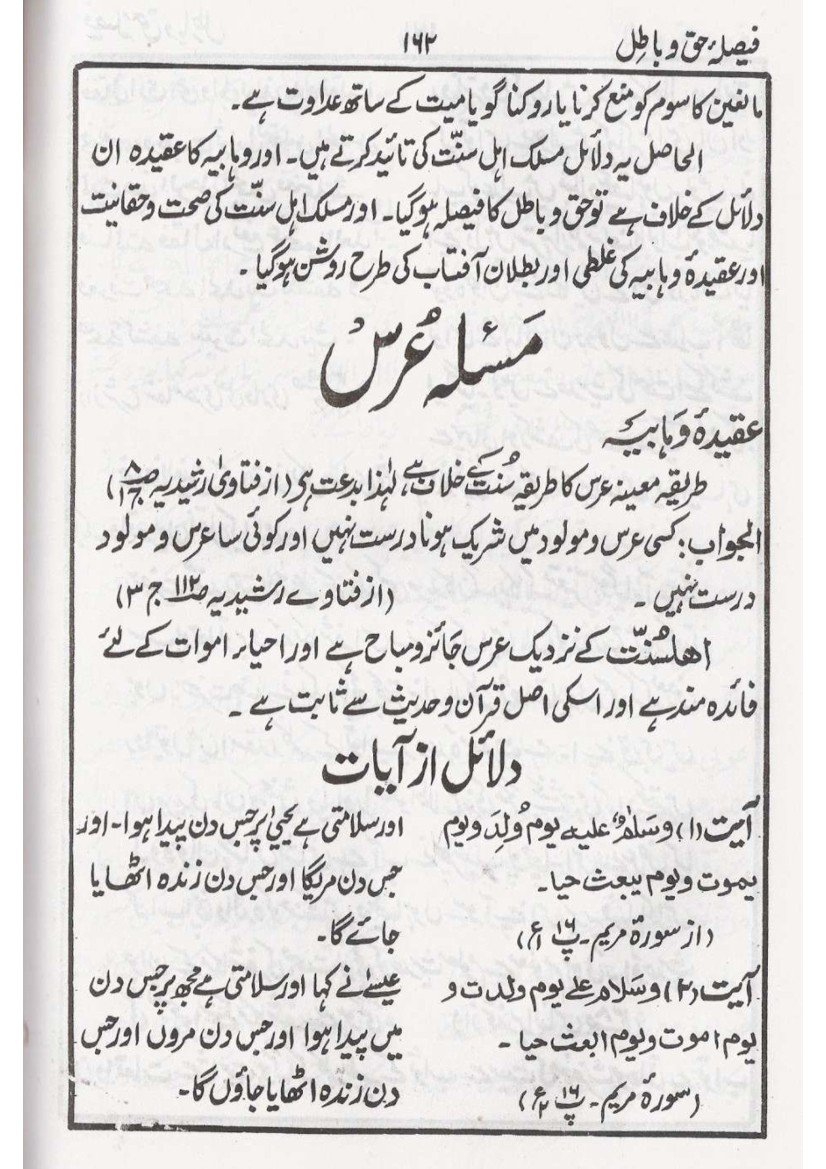 فیصلۂ حق و باطل
۱۶۲
مانعین کا سوم کو منع کرنا یا روکنا گویا میت کے ساتھ عداوت ہے۔
الحاصل یہ دلائل مسلک اہل سنّت کی تائید کرتے ہیں۔ اور وہابیہ کا عقیدہ ان
دلائل کے خلاف ہے تو حق و باطل کا فیصلہ ہوگیا۔ اور مسلک اہل سنّت کی صحت و حقانیت
اور عقیدۂ وہابیہ کی غلطی اور بطلان آفتاب کی طرح روشن ہوگیا۔
مَسئلہ عُرس
عقیدۂ وہابیہ
طریقہ معینہ عرس کا طریقہ سُنت کے خلاف ہے لہٰذا بدعت ہی (از فتاویٰ رشیدیہ ص۸ ج۱)
الجواب: کسی عرس و مولود میں شریک ہونا درست نہیں اور کوئی سا عرس و مولود
درست نہیں۔ (از فتاوے رشیدیہ ص۱۱۲ ج۳)
اھلسُنّت کے نزدیک عرس جائز و مباح ہے اور احیاء اموات کے لئے
فائدہ مند ہے اور اسکی اصل قرآن و حدیث سے ثابت ہے۔
دلائل از آیات
آیت (۱) وسَلٰمٌ علیہ یوم وُلِدَ و یوم
یموت و یوم یبعث حیا۔
(از سورۂ مریم۔ پ۱۶ ع۱)
اور سلامتی ہے یحییٰ پر جس دن پیدا ہوا۔ اور
جس دن مریگا اور جس دن زندہ اٹھایا
جائے گا۔
آیت (۲) وسَلام علے یوم ولدت و
یوم اموت و یوم ابعث حیا۔
(سورۂ مریم۔ پ۱۶ ع۲)
عیسےٰ نے کہا اور سلامتی ہے مجھ پر جس دن
میں پیدا ہوا اور جس دن مروں اور جس
دن زندہ اٹھایا جاؤں گا۔